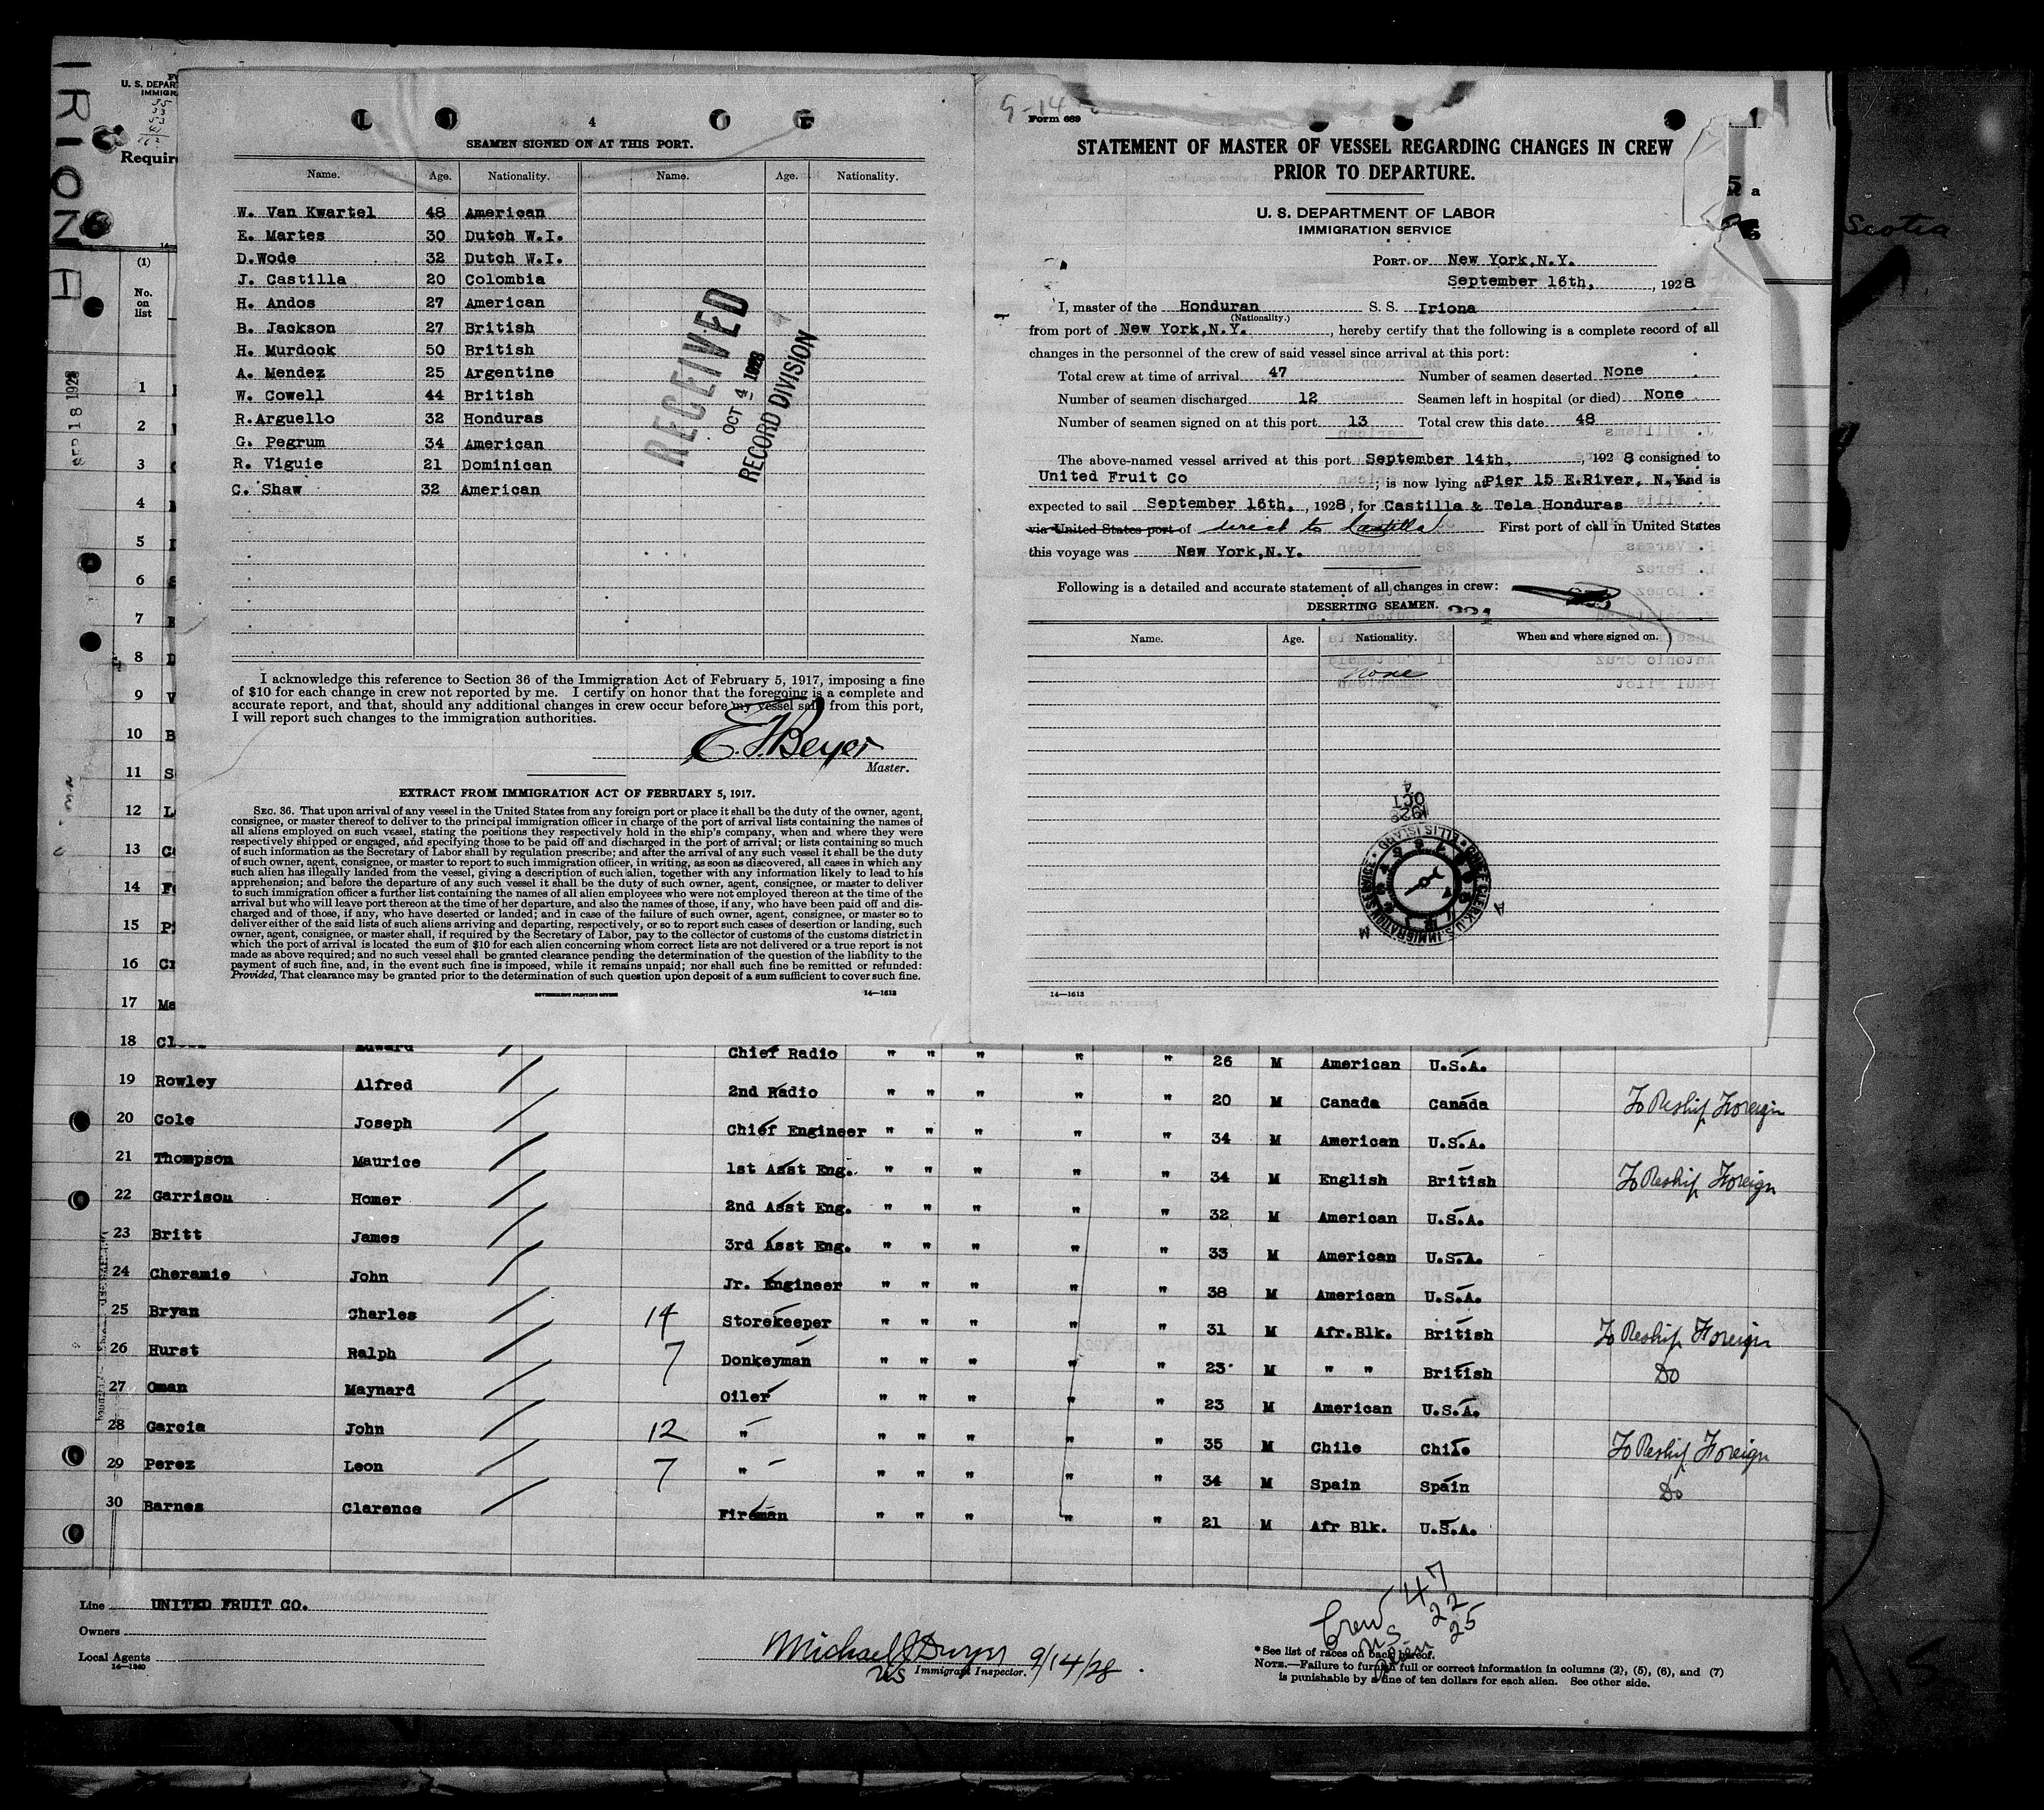 IRIONA
U. S. DEPAR
IMMIGR
Requir
(1)
No.
on
list
SEP 18 1928
4
SEAMEN SIGNED ON AT THIS PORT.
Name. Age. Nationality. Name. Age. Nationality.
W. Van Kwartel 48 American
E. Martes 30 Dutch W.I.
D.Wode 32 Dutch W.I.
J. Castilla 20 Colombia
H. Andos 27 American
B. Jackson 27 British
H. Murdock 50 British
A. Mendez 25 Argentine
W. Cowell 44 British
R.Arguello 32 Honduras
G. Pegrum 34 American
R. Viguie 21 Dominican
C. Shaw 32 American
RECEIVED
OCT 4 1928
RECORD DIVISION
I acknowledge this reference to Section 36 of the Immigration Act of February 5, 1917, imposing a fine
of $10 for each change in crew not reported by me. I certify on honor that the foregoing is a complete and
accurate report, and that, should any additional changes in crew occur before my vessel sails from this port,
I will report such changes to the immigration authorities.
E. J. Beyer
Master.
EXTRACT FROM IMMIGRATION ACT OF FEBRUARY 5, 1917.
SEC. 36. That upon arrival of any vessel in the United States from any foreign port or place it shall be the duty of the owner, agent,
consignee, or master thereof to deliver to the principal immigration officer in charge of the port of arrival lists containing the names of
all aliens employed on such vessel, stating the positions they respectively hold in the ship's company, when and where they were
respectively shipped or engaged, and specifying those to be paid off and discharged in the port of arrival; or lists containing so much
of such information as the Secretary of Labor shall by regulation prescribe; and after the arrival of any such vessel it shall be the duty
of such owner, agent, consignee, or master to report to such immigration officer, in writing, as soon as discovered, all cases in which any
such alien has illegally landed from the vessel, giving a description of such alien, together with any information likely to lead to his
apprehension; and before the departure of any such vessel it shall be the duty of such owner, agent, consignee, or master to deliver
to such immigration officer a further list containing the names of all alien employees who were not employed thereon at the time of the
arrival but who will leave port thereon at the time of her departure, and also the names of those, if any, who have been paid off and dis-
charged and of those, if any, who have deserted or landed; and in case of the failure of such owner, agent, consignee, or master so to
deliver either of the said lists of such aliens arriving and departing, respectively, or so to report such cases of desertion or landing, such
owner, agent, consignee, or master shall, if required by the Secretary of Labor, pay to the collector of customs of the customs district in
which the port of arrival is located the sum of $10 for each alien concerning whom correct lists are not delivered or a true report is not
made as above required; and no such vessel shall be granted clearance pending the determination of the question of the liability to the
payment of such fine, and, in the event such fine is imposed, while it remains unpaid; nor shall such fine be remitted or refunded:
Provided, That clearance may be granted prior to the determination of such question upon deposit of a sum sufficient to cover such fine.
GOVERNMENT PRINTING OFFICE 14—1613
9-14
Form 689
STATEMENT OF MASTER OF VESSEL REGARDING CHANGES IN CREW
PRIOR TO DEPARTURE.
U. S. DEPARTMENT OF LABOR
IMMIGRATION SERVICE
PORT OF New York,N.Y.
September 16th, , 1928
I, master of the Honduran S. S. Iriona
(Nationality.)
from port of New York,N.Y. , hereby certify that the following is a complete record of all
changes in the personnel of the crew of said vessel since arrival at this port:
Total crew at time of arrival 47 Number of seamen deserted None
Number of seamen discharged 12 Seamen left in hospital (or died) None
Number of seamen signed on at this port 13 Total crew this date 48
The above-named vessel arrived at this port September 14th, , 1928, consigned to
United Fruit Co ; is now lying at Pier 15 E.River, N.Y. and is
expected to sail September 16th, , 1928, for Castilla & Tela Honduras
via United States port of direct to Castilla First port of call in United States
this voyage was New York,N.Y.
Following is a detailed and accurate statement of all changes in crew:
DESERTING SEAMEN.
Name. Age. Nationality. When and where signed on.
None
OCT 4 1928
CHIEF CLERK U.S. IMMIGRATION SERVICE ELLIS ISLAND
14—1613
Scotia
1
2
3
4
5
6
7
8
9
10 B
11 S
12 L
13
14 F
15
16
17 Ma
18 Edward Chief Radio " " " " " 26 M American U.S.A.
19 Rowley Alfred 2nd Radio " " " " " 20 M Canada Canada To Reship Foreign
20 Cole Joseph Chief Engineer " " " " " 34 M American U.S.A.
21 Thompson Maurice 1st Asst Eng. " " " " " 34 M English British To Reship Foreign
22 Garrison Homer 2nd Asst Eng. " " " " " 32 M American U.S.A.
23 Britt James 3rd Asst Eng. " " " " " 33 M American U.S.A.
24 Cheramie John Jr. Engineer " " " " " 38 M American U.S.A.
25 Bryan Charles 14 Storekeeper " " " " " 31 M Afr.Blk. British To Reship Foreign
26 Hurst Ralph 7 Donkeyman " " " " " 23 M " " British Do
27 Oman Maynard Oiler " " " " " 23 M American U.S.A.
28 Garcia John 12 " " " " " " 35 M Chile Chile To Reship Foreign
29 Perez Leon 7 " " " " " " 34 M Spain Spain Do
30 Barnes Clarence Fireman " " " " " 21 M Afr Blk. U.S.A.
Line UNITED FRUIT CO.
Owners
Local Agents
14—1240
Michael J Dwyer 9/14/28
US Immigrant Inspector.
Crew 47
US 22
Alien 25
* See list of races on back hereof.
NOTE.—Failure to furnish full or correct information in columns (2), (5), (6), and (7)
is punishable by a fine of ten dollars for each alien. See other side.